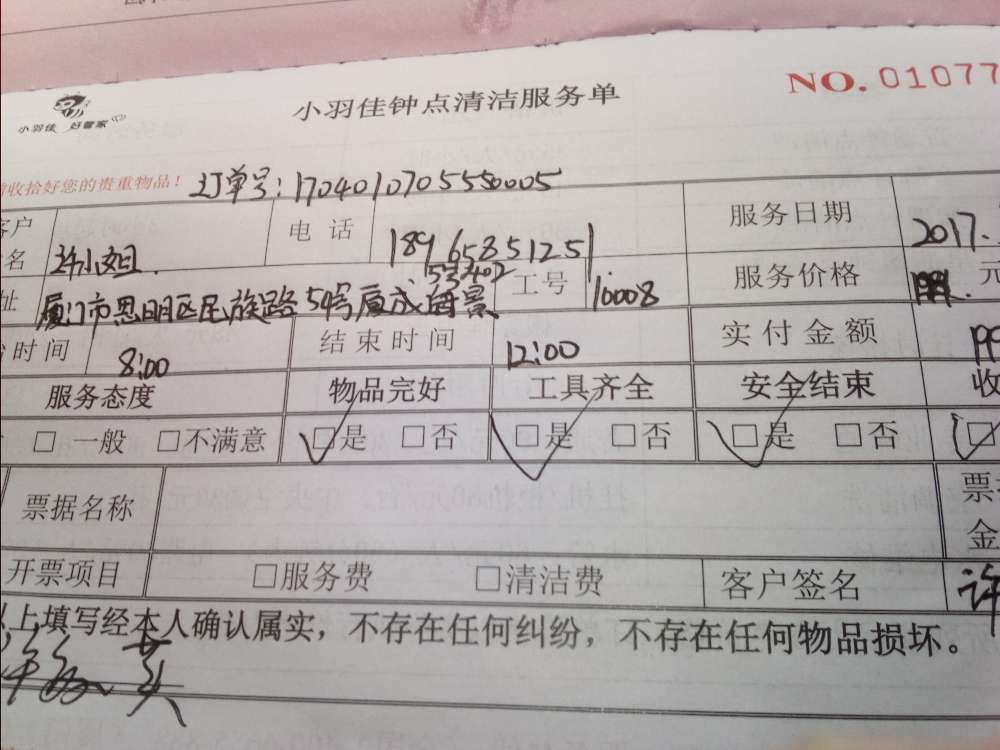 小羽佳钟点清洁服务单 NO.01077
小羽佳 好管家
收拾好您的贵重物品！ 订单号：1704010705550005
客户 许小姐 电话 18965851251 服务日期 2017.
名
厦门市思明区民族路54号厦成海景 工号 10008 服务价格 元
时间 8:00 结束时间 12:00 实付金额 199
服务态度 物品完好 工具齐全 安全结束 收
□一般 □不满意 □是 □否 □是 □否 □是 □否 □
票据名称 票
金
开票项目 □服务费 □清洁费 客户签名 许
以上填写经本人确认属实，不存在任何纠纷，不存在任何物品损坏。